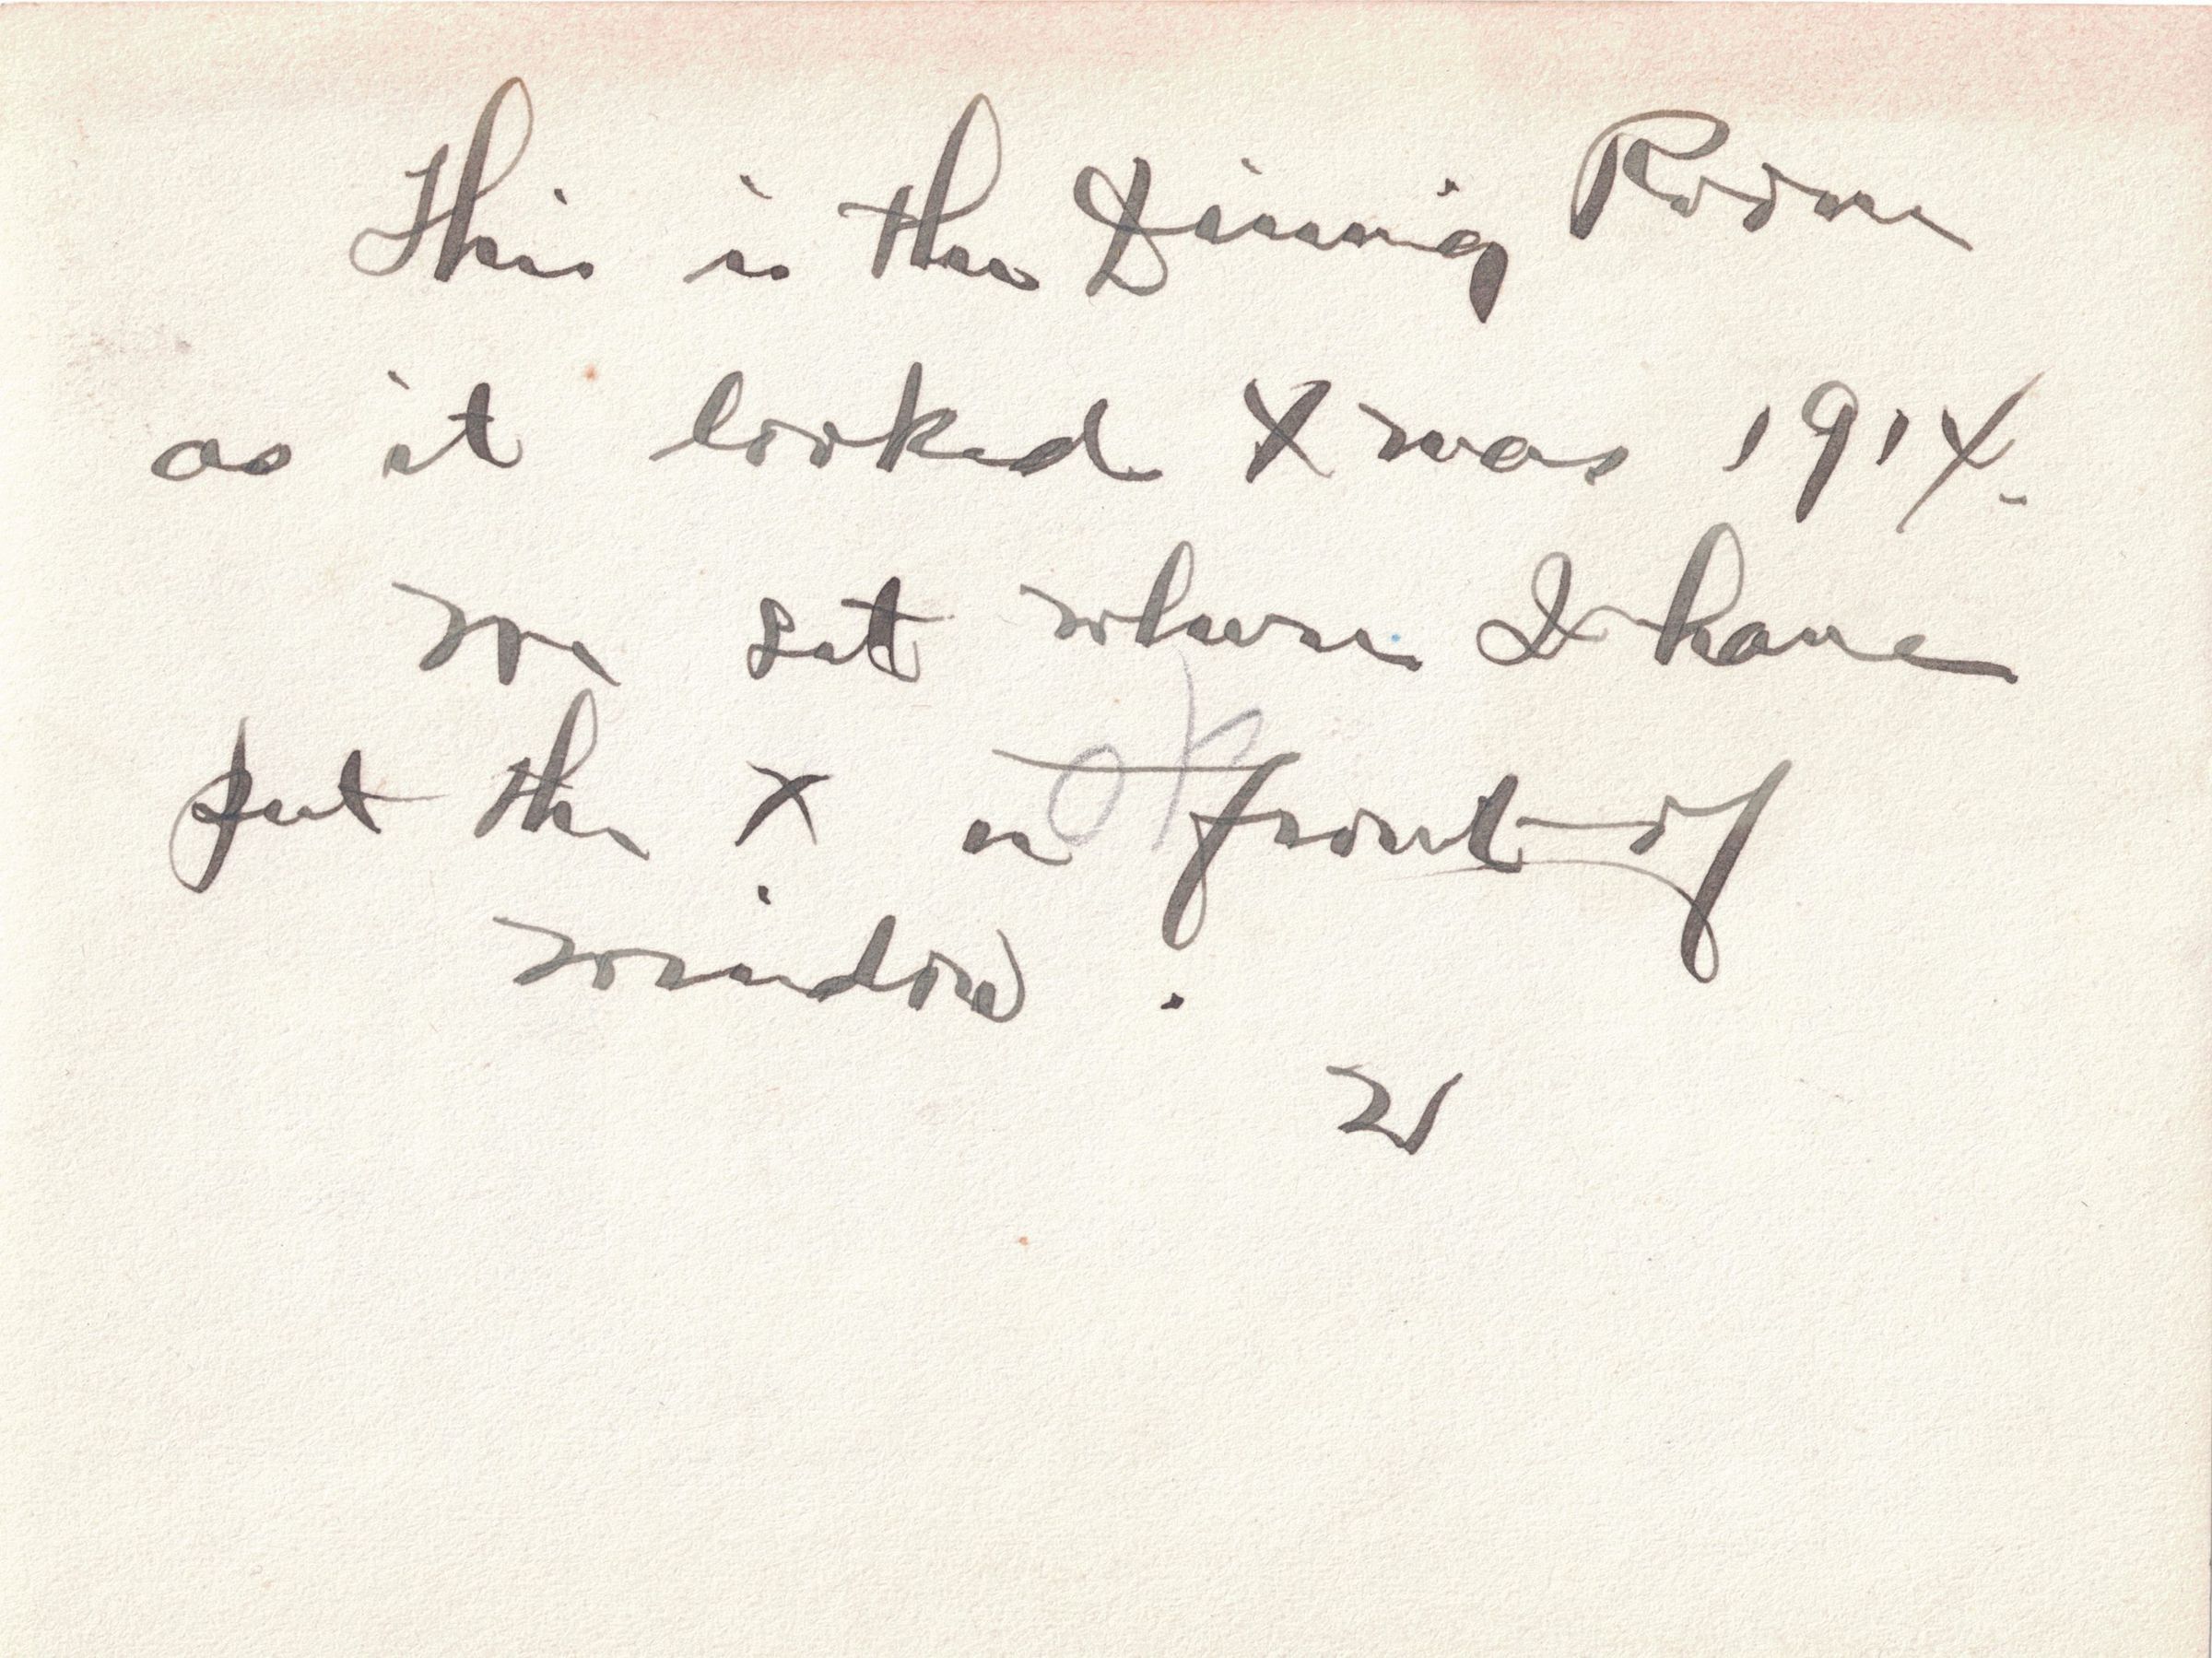 This is the Dining Room
as it looked Xmas 1914.
We sat where I have
OK
put the X in front of
window.
W